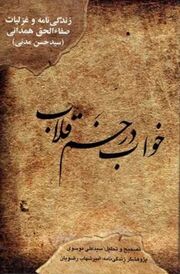 زندگی‌نامه و غزلیات
صفاءالحق همدانی
(سید حسن مدنی)
خواب در خم قلاب
تصحیح و تحلیل: سیدعلی موسوی
پژوهشگر زندگی‌نامه: امیرشهاب رضویان